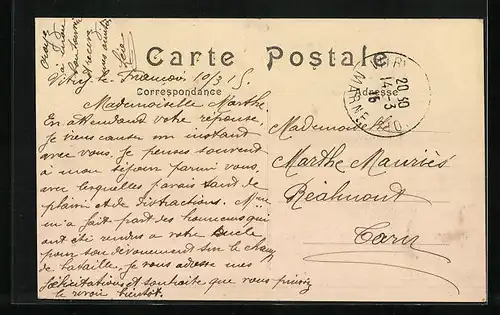 Carte Postale
Correspondance
Adresse
Vitry le François 10/3 15.
Mademoiselle Marthe.
En attendant votre réponse,
Je viens causer un instant
avec vous. Je pense souvent
à mon séjour parmi vous,
avec lesquelles j'avais tant de
plaisir et de distractions. Mme
m'a fait part des honneurs qui
ont été rendus à votre oncle
pour son dévouement sur le champ
de bataille, je vous adresse mes
félicitations et souhaite que vous puissiez
le revoir bientôt.
VITRY
20 30
14-3
15
MARNE
Mademoiselle
Marthe Mauriès
Réalmont
Tarn